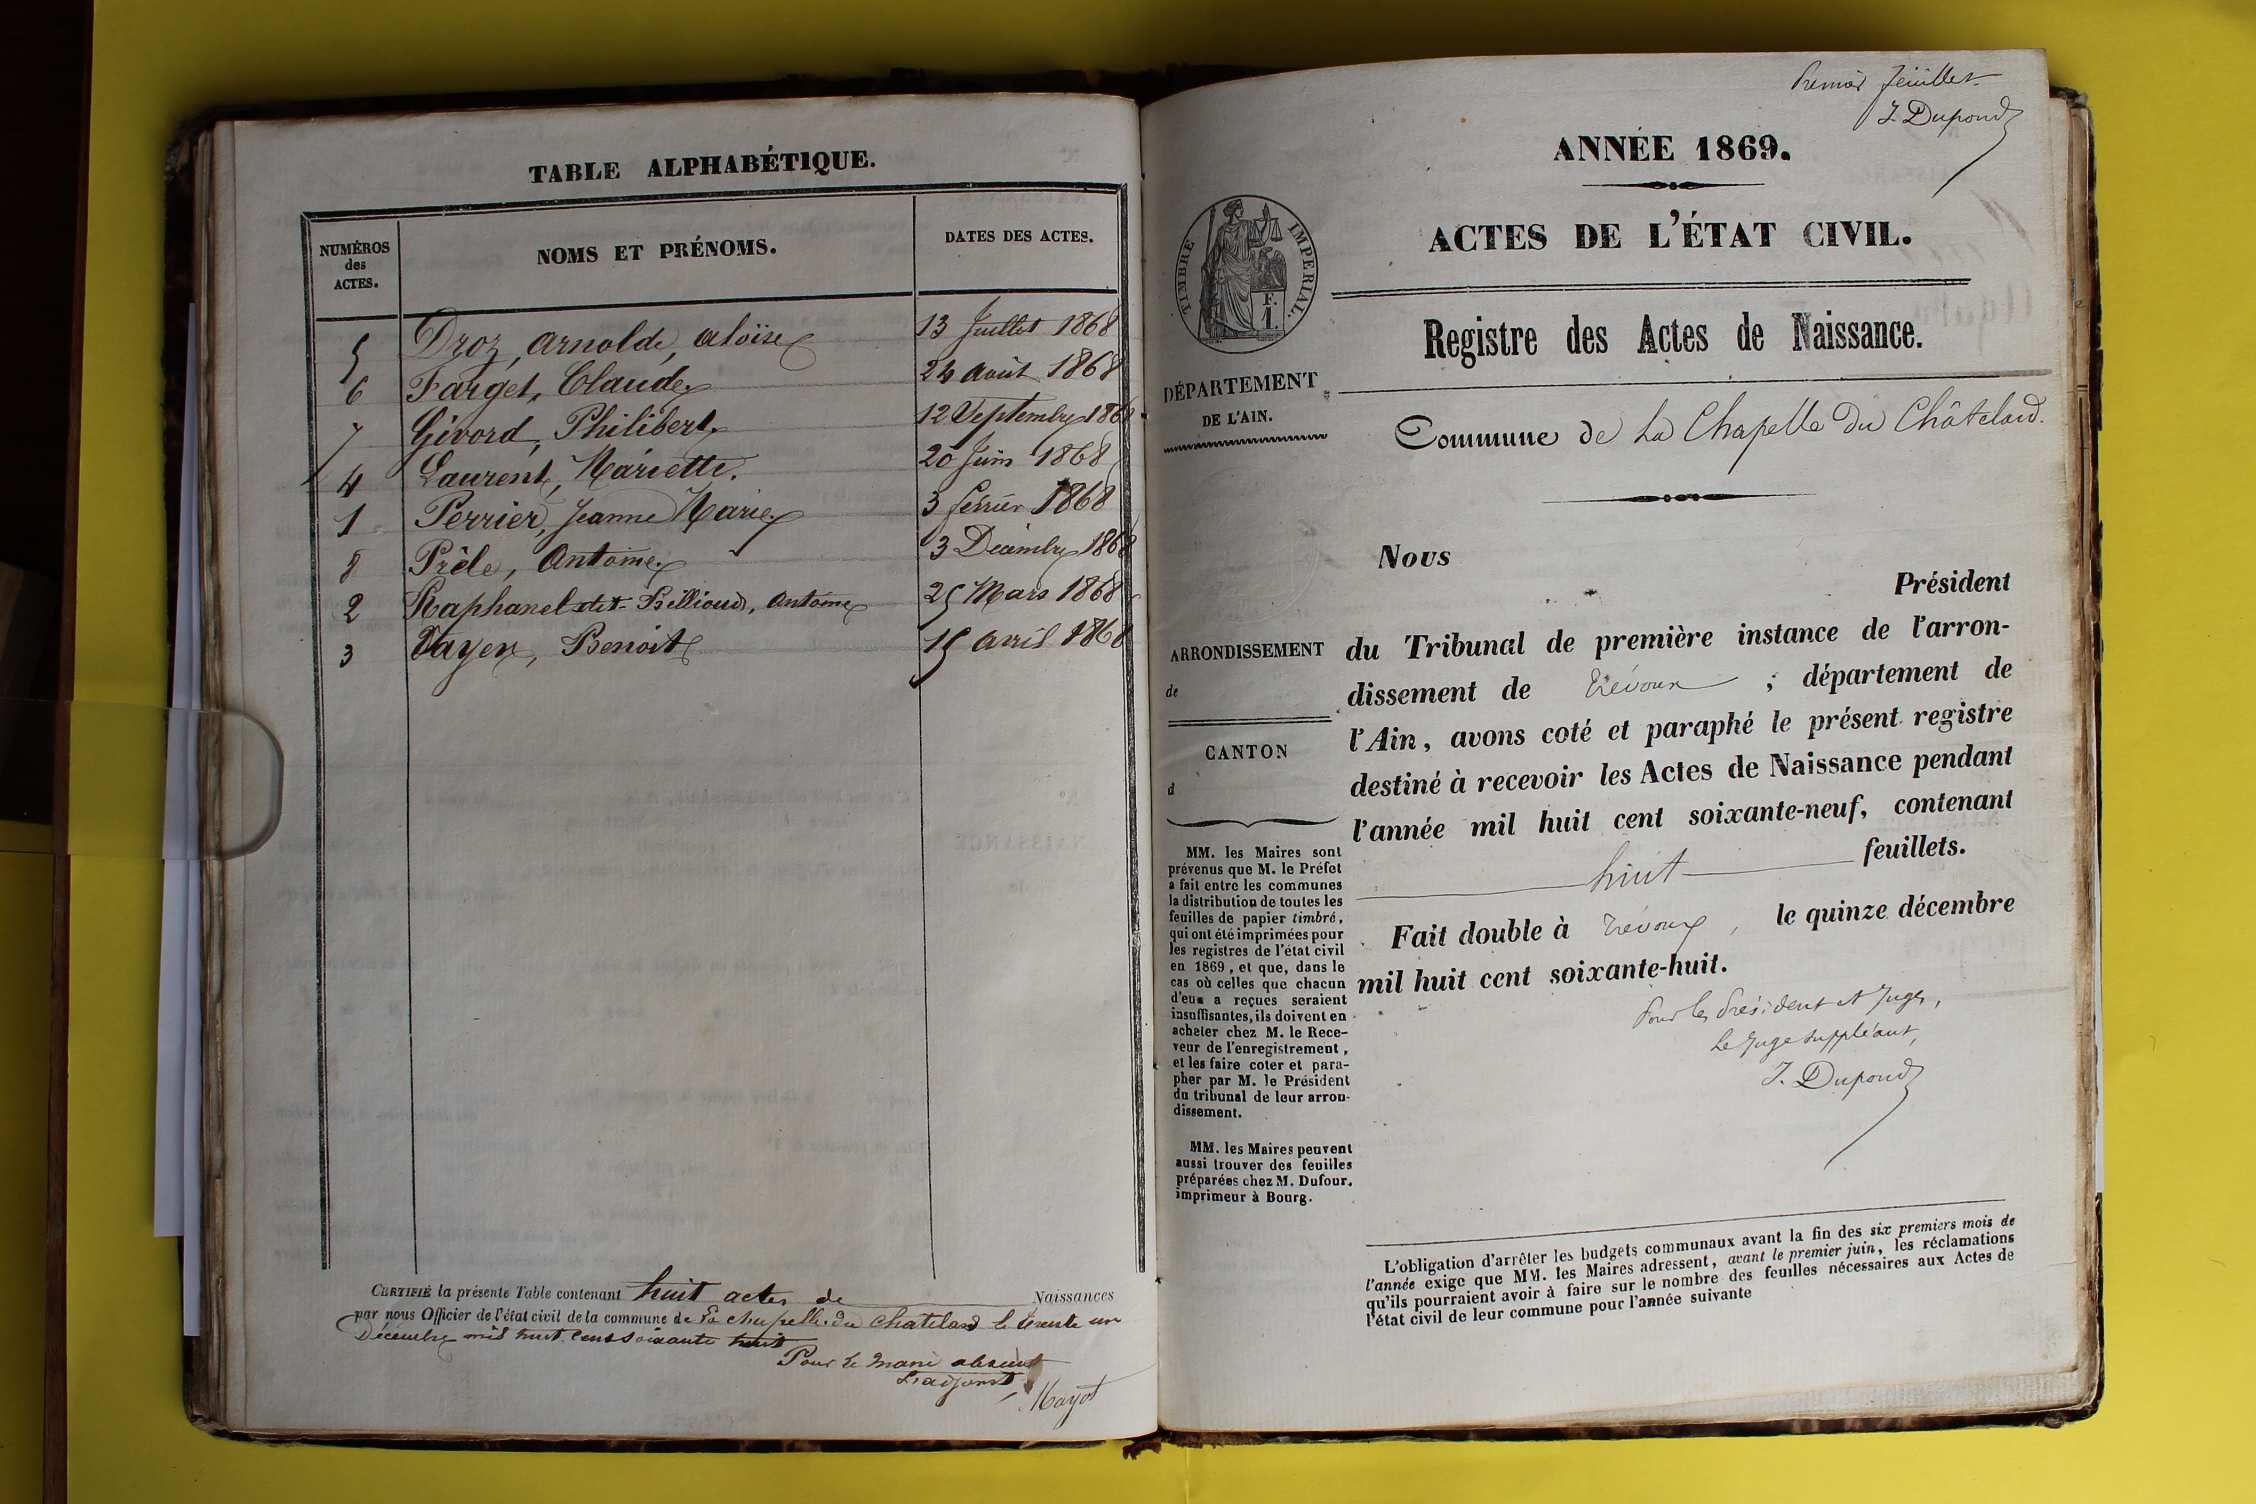 TABLE ALPHABÉTIQUE.
NUMÉROS
des
ACTES.
NOMS ET PRÉNOMS.
DATES DES ACTES.
5 Droz, Arnolde, Aloïse 13 Juillet 1868
6 Farget, Claude 24 août 1868
7 Givord, Philibert 12 Septembre 1868
4 Laurent, Mariette. 20 Juin 1868
1 Perrier, Jeanne Marie 3 février 1868
8 Prêle, Antoine 3 Décembre 1868
2 Raphanel dit Billioud, Antoine 25 Mars 1868
3 Vayer, Benoit 15 avril 1868
CERTIFIÉ la présente Table contenant huit actes de Naissances
par nous Officier de l'état civil de la commune de La chapelle du Chatelard le trente un
Décembre mil huit cent soixante huit
Pour le maire absent
L'adjoint,
Mayot
Premier feuillet
J. Dupond
ANNÉE 1869.
ACTES DE L'ÉTAT CIVIL.
TIMBRE IMPERIAL.
F.
1.
Registre des Actes de Naissance.
DÉPARTEMENT
DE L'AIN.
Commune de La Chapelle du Châtelard.
Nous
Président
ARRONDISSEMENT
de
CANTON
d
du Tribunal de première instance de l'arron-
dissement de Trévoux ; département de
l'Ain, avons coté et paraphé le présent registre
destiné à recevoir les Actes de Naissance pendant
l'année mil huit cent soixante-neuf, contenant
huit feuillets.
Fait double à Trévoux, le quinze décembre
mil huit cent soixante-huit.
Pour les Président et Juges,
Le Juge suppléant,
J. Dupond
MM. les Maires sont
prévenus que M. le Préfet
a fait entre les communes
la distribution de toutes les
feuilles de papier timbré,
qui ont été imprimées pour
les registres de l'état civil
en 1869, et que, dans le
cas où celles que chacun
d'eux a reçues seraient
insuffisantes, ils doivent en
acheter chez M. le Rece-
veur de l'enregistrement,
et les faire coter et para-
pher par M. le Président
du tribunal de leur arron-
dissement.
MM. les Maires peuvent
aussi trouver des feuilles
préparées chez M. Dufour,
imprimeur à Bourg.
L'obligation d'arrêter les budgets communaux avant la fin des six premiers mois de
l'année exige que MM. les Maires adressent, avant le premier juin, les réclamations
qu'ils pourraient avoir à faire sur le nombre des feuilles nécessaires aux Actes de
l'état civil de leur commune pour l'année suivante